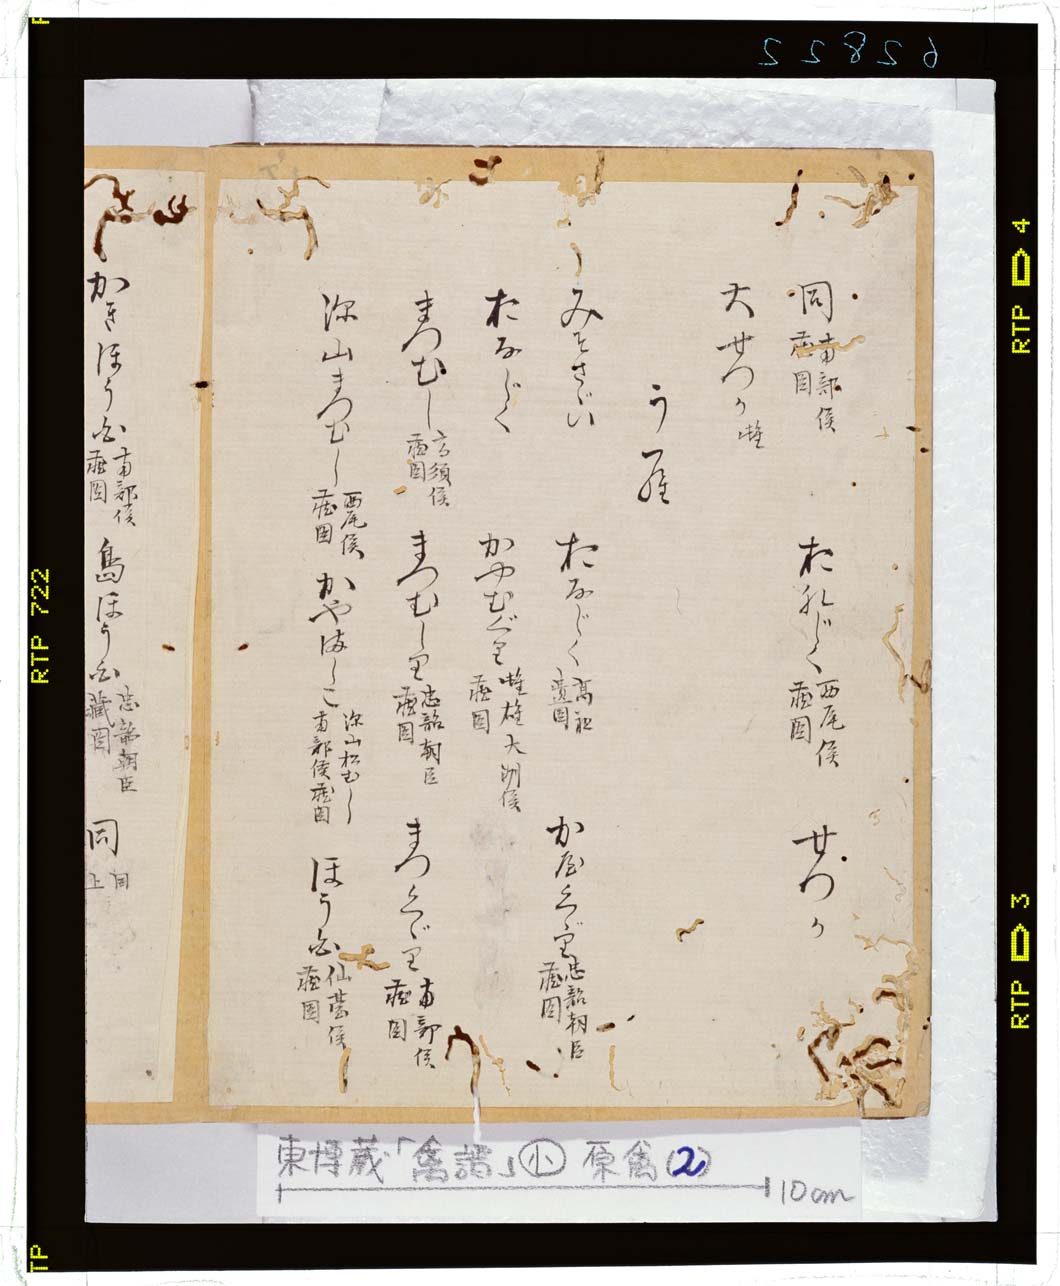 62822
同 南部侯蔵図
たれじく 西尾侯蔵図
せつか
大せつか 雌
うく
みそさゞい
たなじく 高祖遺図
か屋くゞり 忠韶朝臣蔵図
たなじく
かやむぐり 雌雄大洲侯蔵図
まつむし 高須侯蔵図
まつむしり 忠韶朝臣蔵図
まつくゞり 南部侯蔵図
深山まつむし 西尾侯蔵図
かやましこ 深山松むし 南部侯蔵図
ほう白 仙台侯蔵図
かきほう白 南部侯蔵図
島ほう白 忠韶朝臣蔵図
同 同上
東博蔵「禽譜」小 原禽(2)
10cm
RTP 4
RTP 3
RTP 722
TP